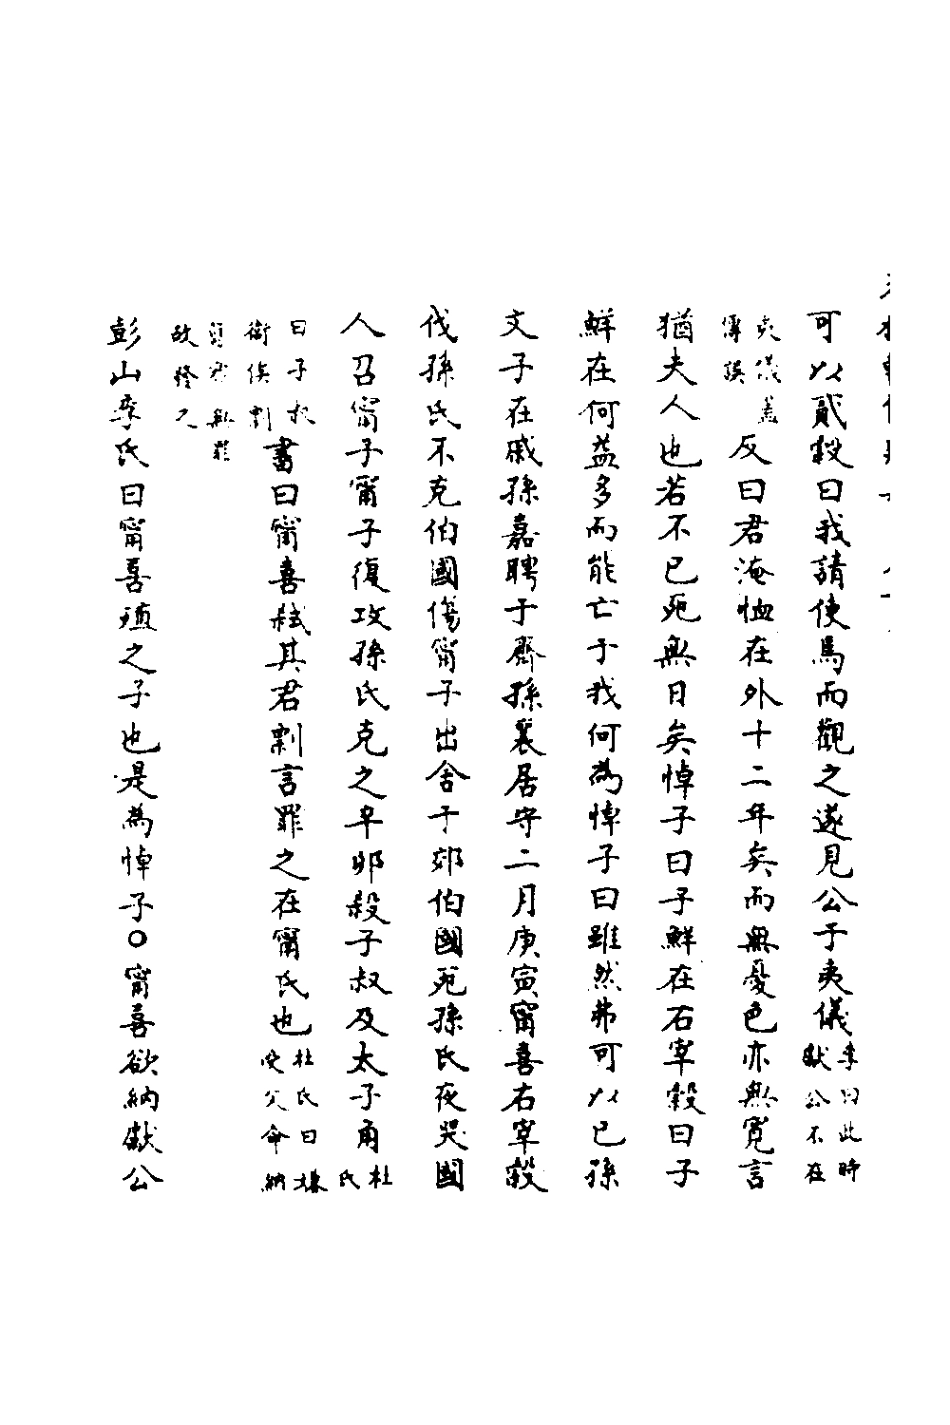 可以貳穀曰我請使焉而觀之遂見公于夷儀李曰此時獻公不在
夷儀蓋傳誤反曰君淹恤在外十二年矣而無憂色亦無寬言
猶夫人也若不已死無日矣悼子曰子鮮在右宰穀曰子
鮮在何益多而能亡于我何為悼子曰雖然弗可以已孫
文子在戚孫嘉聘于齊孫襄居守二月庚寅甯喜右宰穀
伐孫氏不克伯國傷甯子出舍于郊伯國死孫氏夜哭國
人召甯子甯子復攻孫氏克之辛卯殺子叔及太子角杜氏
曰子叔衛侯剽書曰甯喜弒其君剽言罪之在甯氏也杜氏曰嫌受父命納
舊君無罪故發之
彭山季氏曰甯喜殖之子也是為悼子○甯喜欲納獻公